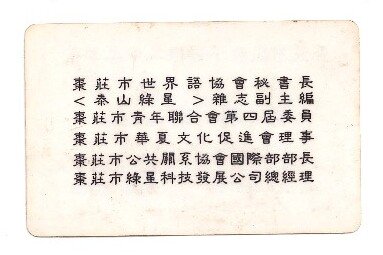 棗莊市世界語協會秘書長
<泰山綠星>雜志副主編
棗莊市青年聯合會第四屆委員
棗莊市華夏文化促進會理事
棗莊市公共關系協會國際部部長
棗莊市綠星科技發展公司總經理